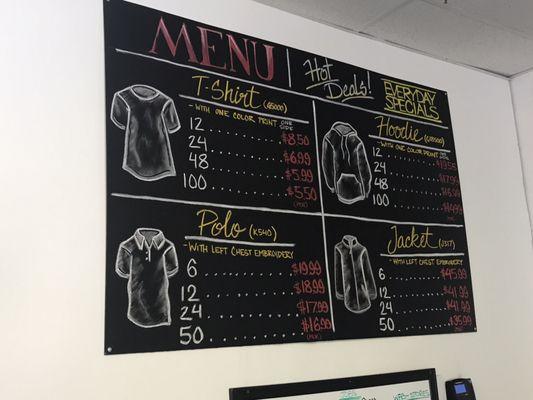 MENU
Hot
Deals!
EVERYDAY
SPECIALS
T-Shirt (G5000)
-WITH ONE COLOR PRINT ONE SIDE
12 ........ $8.50
24 ........ $6.99
48 ........ $5.99
100 ........ $5.50
Hoodie
-WITH ONE COLOR PRINT
12
24
48
100
Polo (K540)
-WITH LEFT CHEST EMBROIDERY
6 ........ $19.99
12 ........ $18.99
24 ........ $17.99
50 ........ $16.99
Jacket
-WITH LEFT CHEST EMBROIDERY
6 ........ $45.99
12 ........ $43.99
24 ........ $41.99
50 ........ $39.99